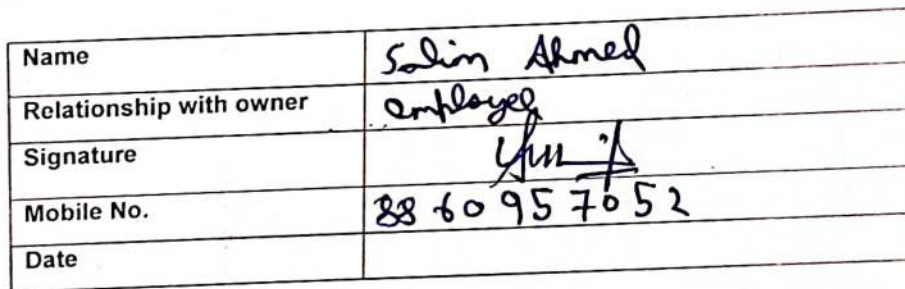 Name Salim Ahmed
Relationship with owner employee
Signature
Mobile No. 8860957052
Date